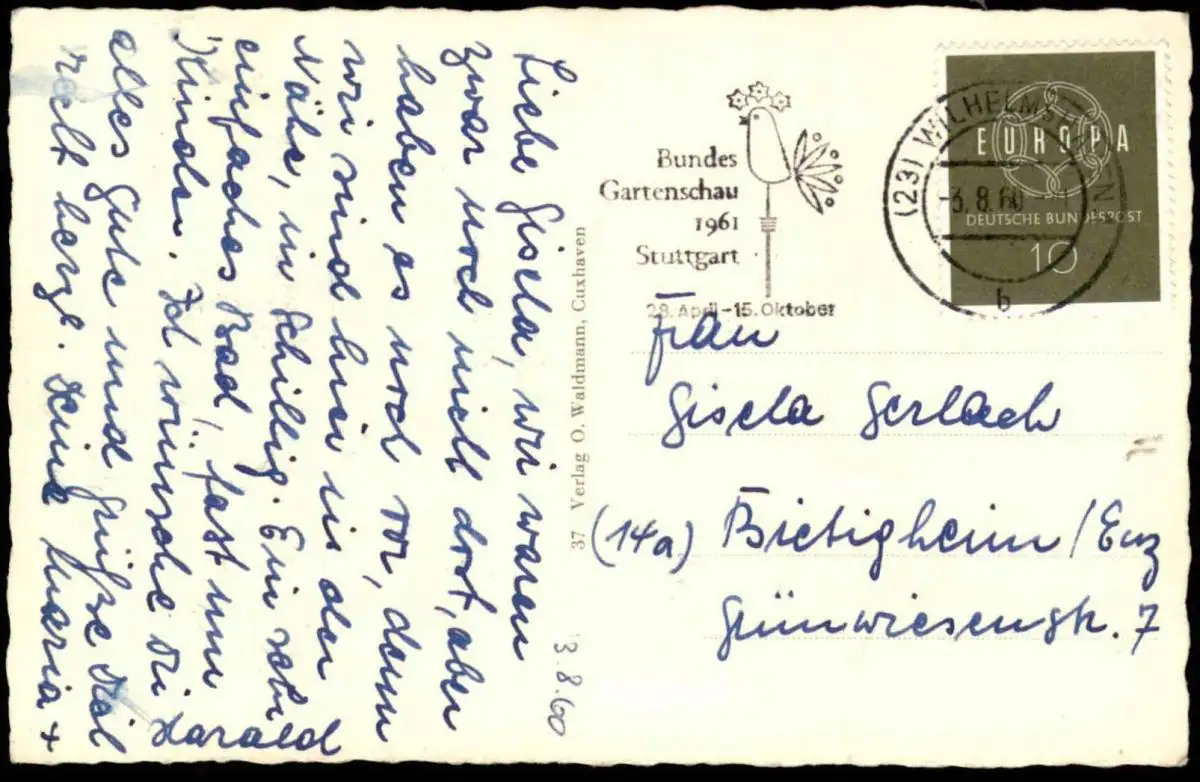 Liebe Gisela, wir waren
zwar noch nicht dort, aber
haben es noch vor, denn
wir sind hier in der
Nähe, in Schillig. Ein sehr
einfaches Bad, fast nur
Kinder. Ich wünsche Dir
alles Gute und Grüße Dich
recht herzl. Deine Maria +
Harald
3.8.60
37 Verlag O. Waldmann, Cuxhaven
Bundes
Gartenschau
1961
Stuttgart
28. April-15. Oktober
(23) WILHELMSHAVEN
-3.8.60
b
EUROPA
DEUTSCHE BUNDESPOST
10
Frau
Gisela Gerlach
(14a) Bietigheim/Enz
Grünwiesenstr. 7